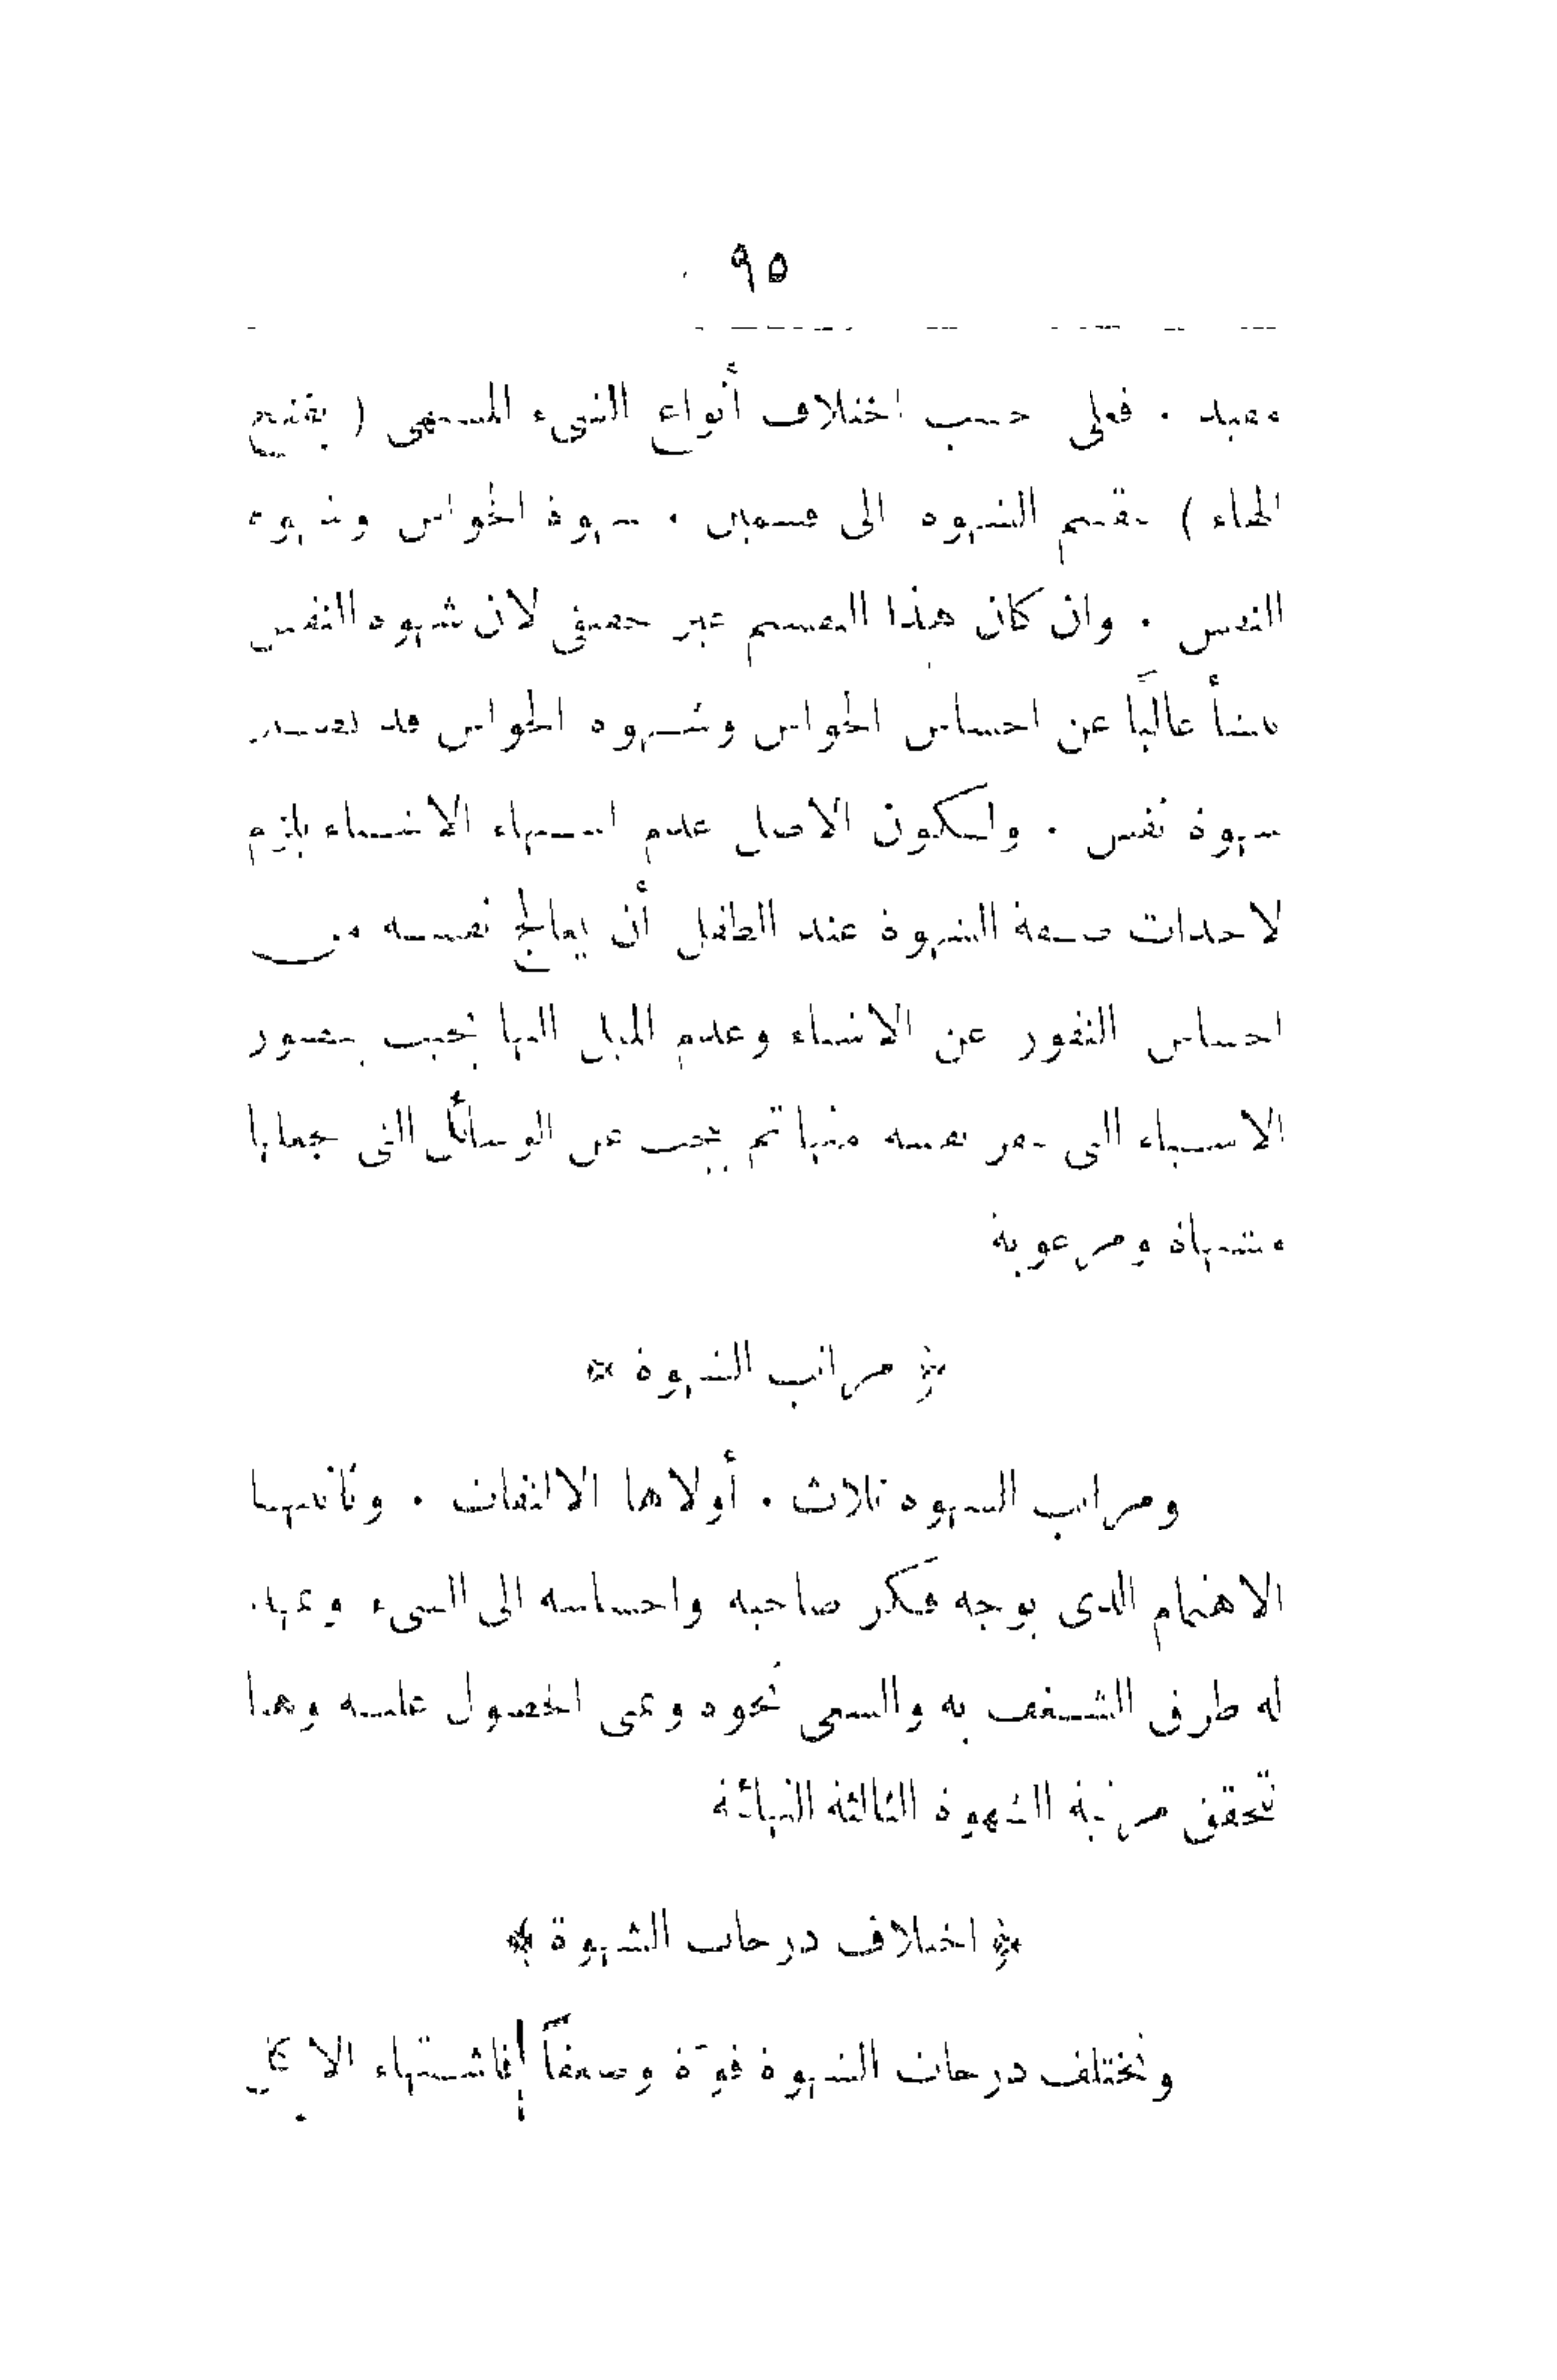 ٩٥
مفيد . فعلى حسب اختلاف أنواع الشىء المشتهى ( بفتح
الهاء ) تنقسم الشهوة الى قسمين . شهوة الحواس وشهوة
النفس . وان كان هذا التقسيم غير حقيقى لان شهوة النفس
تنشأ غالبًا عن احساس الحواس وشهوة الحواس قد تصير
شهوة نفس . ولكون الاصل عدم اشتهاء الاشياء يلزم
لاحداث صفة الشهوة عند الطفل أن يعالج نفسه من
احساس النفور عن الاشياء وعدم الميل اليها بحيث يتصور
الاشياء التى تنفر نفسه منها ثم يبحث عن الوسائل التى تجعلها
مشتهاة ومرغوبة
﴿ مراتب الشهوة ﴾
ومراتب الشهوة ثلاث . أولاها الالتفات . وثانيتها
الاهتمام الذى يوجه فكر صاحبه واحساسه الى الشىء ويمهد
له طرق الشغف به والسعى نحوه وتمنى الحصول عليه وهنا
تتحقق مرتبة الشهوة الثالثة النهائية
﴿ اختلاف درجات الشهوة ﴾
وتختلف درجات الشهوة قوّة وضعفاً فاشتهاء الاكل